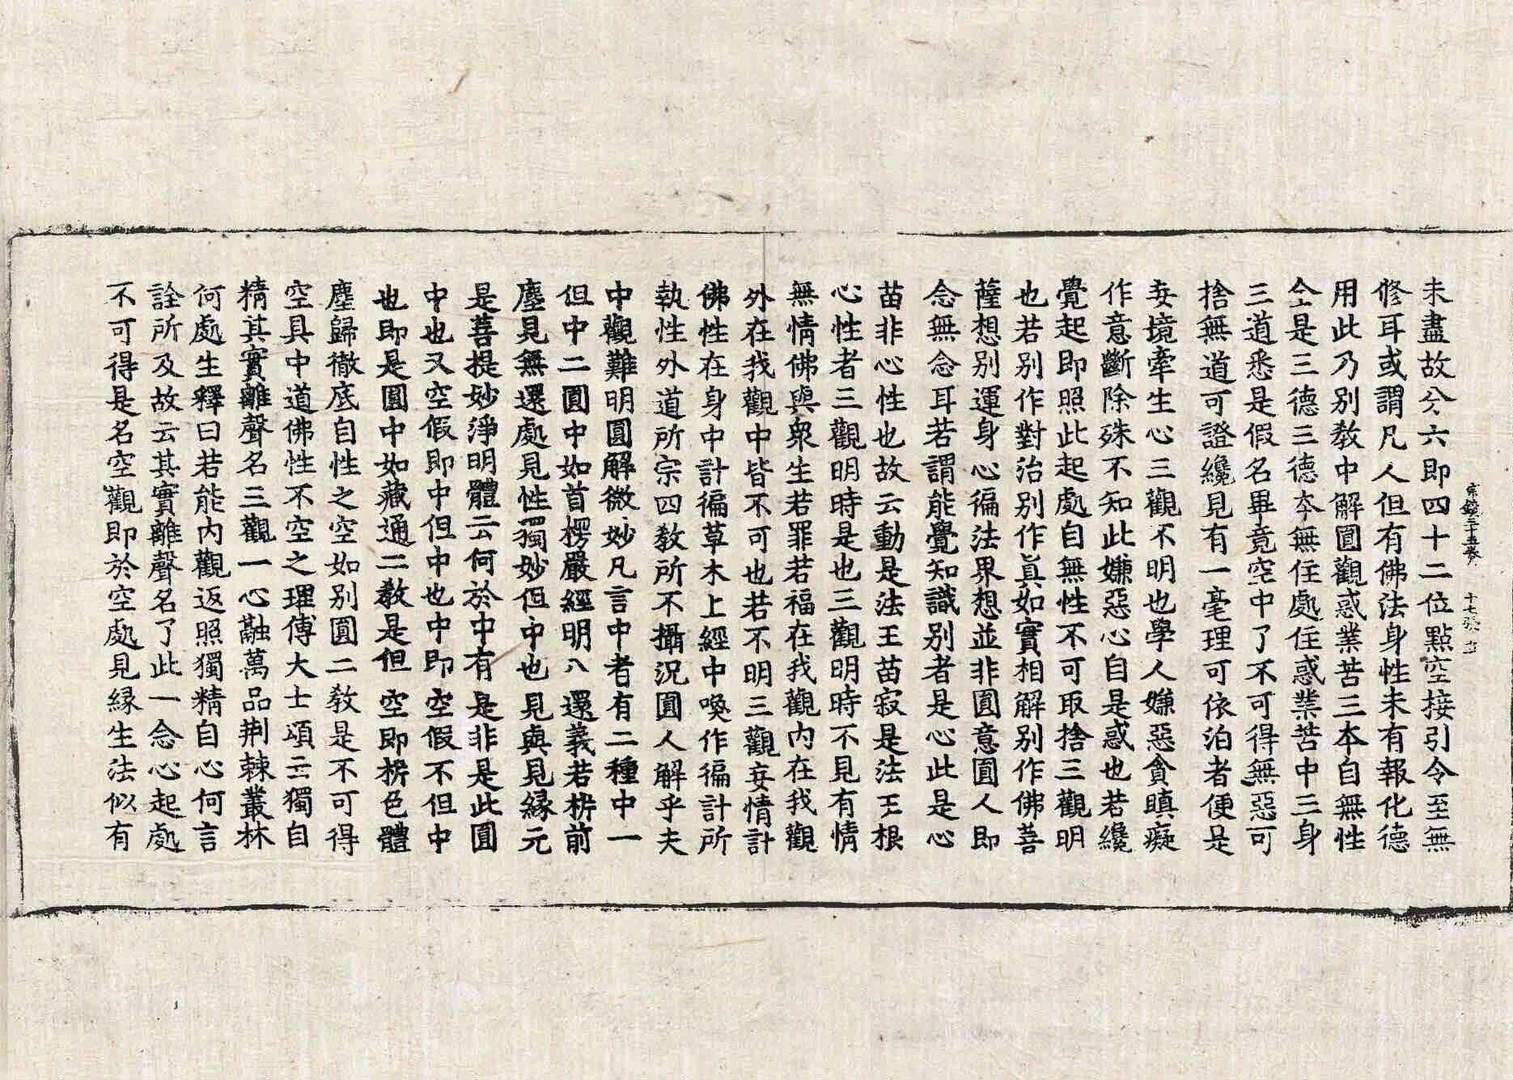 宗鏡三十五卷　十七張
未盡故分六即四十二位點空接引令至無
修耳或謂凡人但有佛法身性未有報化德
用此乃別教中解圓觀惑業苦三本自無性
全是三德三德本無住處住惑業苦中三身
三道悉是假名畢竟空中了不可得無惡可
捨無道可證纔見有一毫理可依泊者便是
妄境牽生心三觀不明也學人嫌惡貪瞋癡
作意斷除殊不知此嫌惡心自是惑也若纔
覺起即照此起處自無性不可取捨三觀明
也若別作對治別作真如實相解別作佛菩
薩想別運身心徧法界想並非圓意圓人即
念無念耳若謂能覺知識別者是心此是心
苗非心性也故云動是法王苗寂是法王根
心性者三觀明時是也三觀明時不見有情
無情佛與衆生若罪若福在我觀內在我觀
外在我觀中皆不可也若不明三觀妄情計
佛性在身中計徧草木上經中喚作徧計所
執性外道所宗四教所不攝況圓人解乎夫
中觀難明圓解微妙凡言中者有二種中一
但中二圓中如首楞嚴經明八還義若枿前
塵見無還處見性獨妙但中也見與見緣元
是菩提妙淨明體云何於中有是非是此圓
中也又空假即中但中也中即空假不但中
也即是圓中如藏通二教是但空即枿色體
塵歸徹底自性之空如別圓二教是不可得
空具中道佛性不空之理傅大士頌云獨自
精其實離聲名三觀一心融萬品荆棘叢林
何處生釋曰若能內觀返照獨精自心何言
詮所及故云其實離聲名了此一念心起處
不可得是名空觀即於空處見緣生法似有